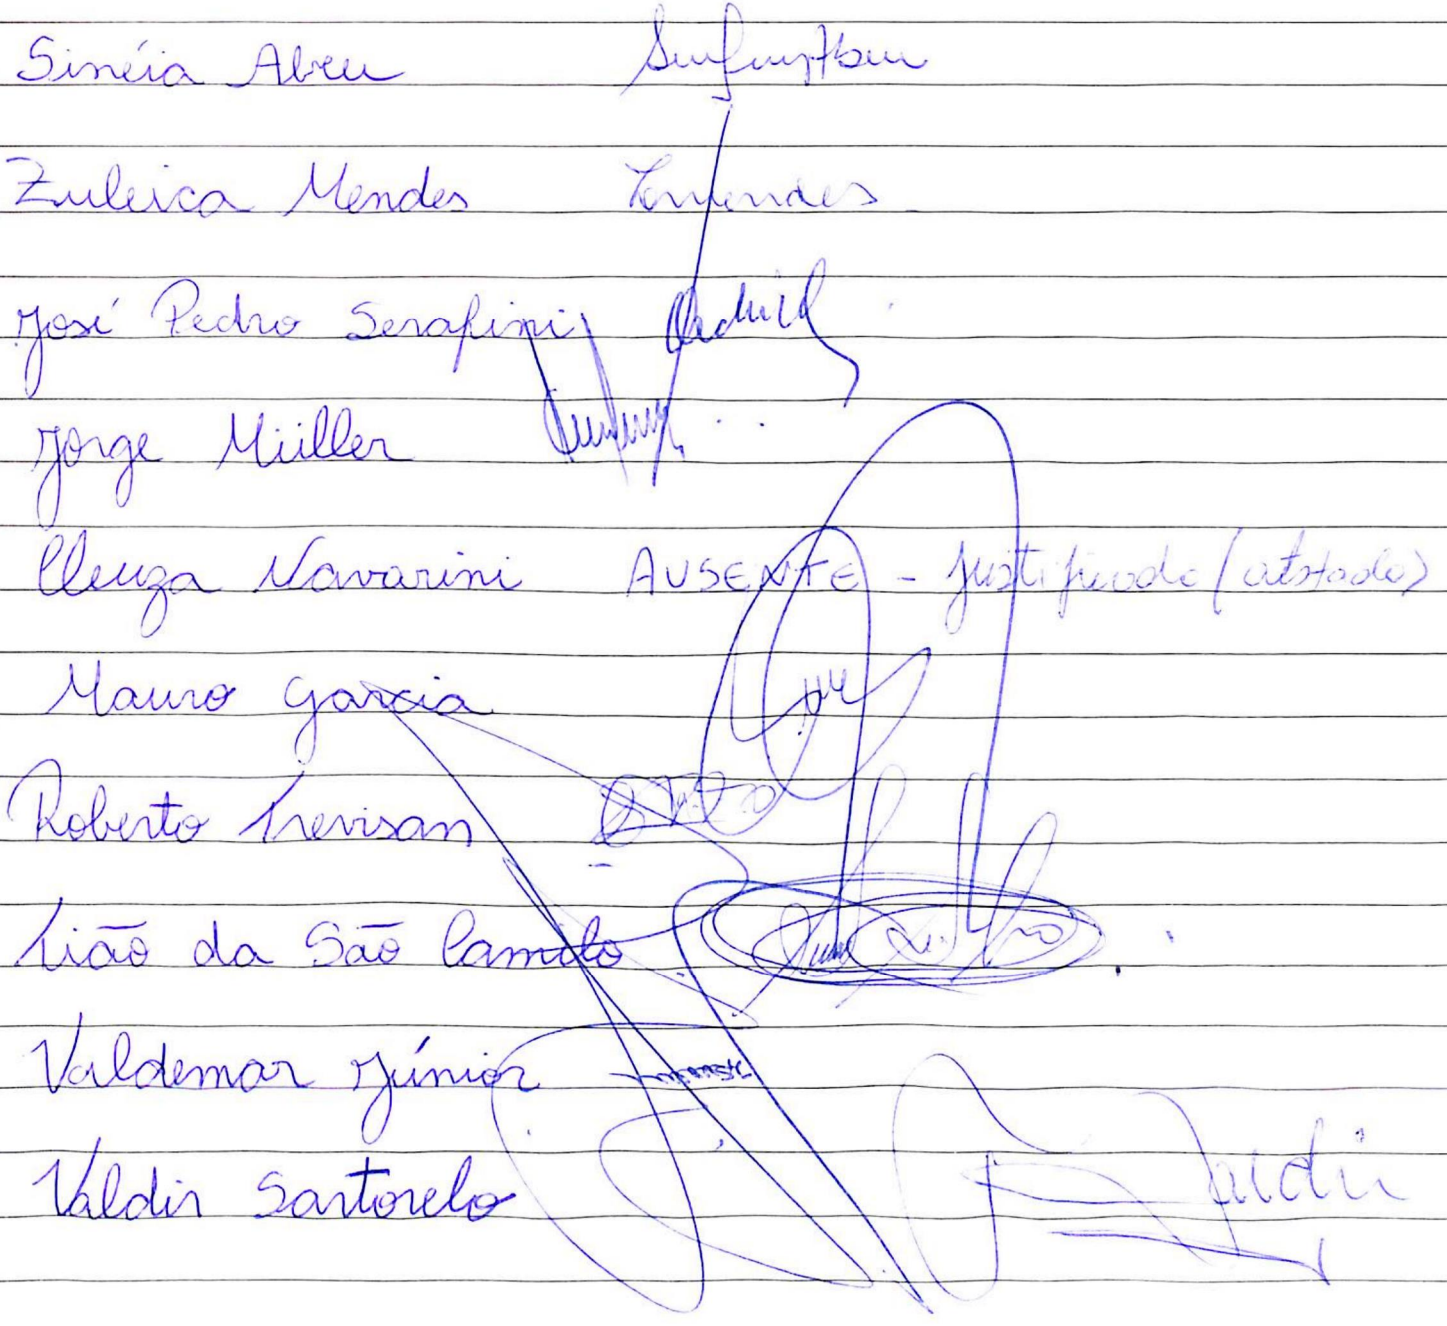 Sinéia Abreu
Zuleica Mendes Zmendes
José Pedro Serafini
Jorge Müller
Cleuza Navarini AUSENTE - Justificado (atestado)
Mauro Garcia
Roberto Trevisan
Tião da São Camilo
Valdemar Júnior
Valdir Sartorelo Valdir